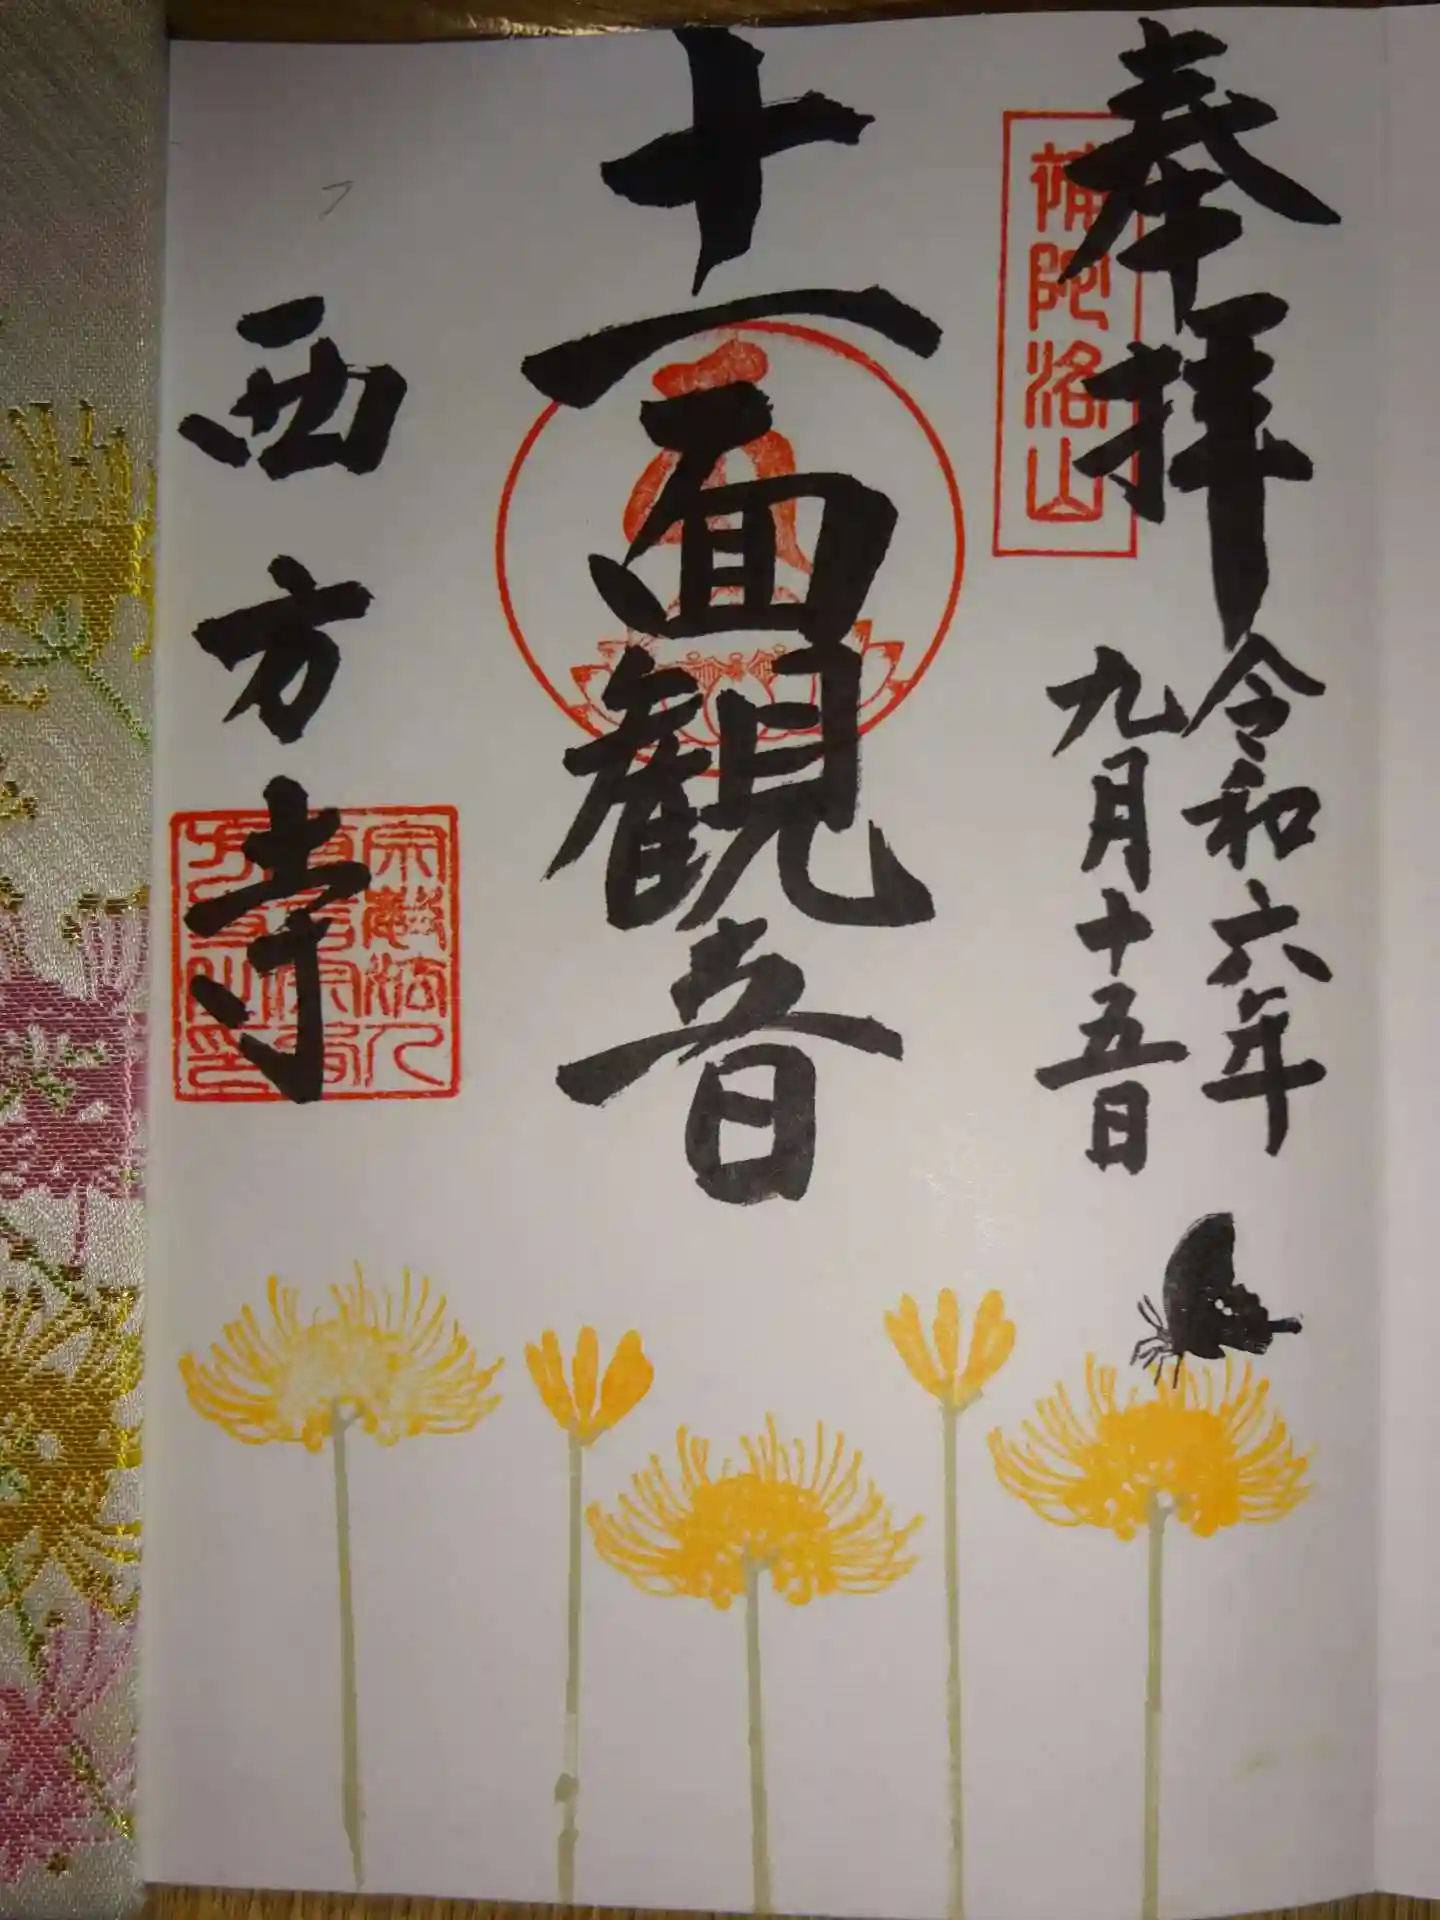 奉拝
補陀洛山
令和六年
九月十五日
十一面観音
西方寺